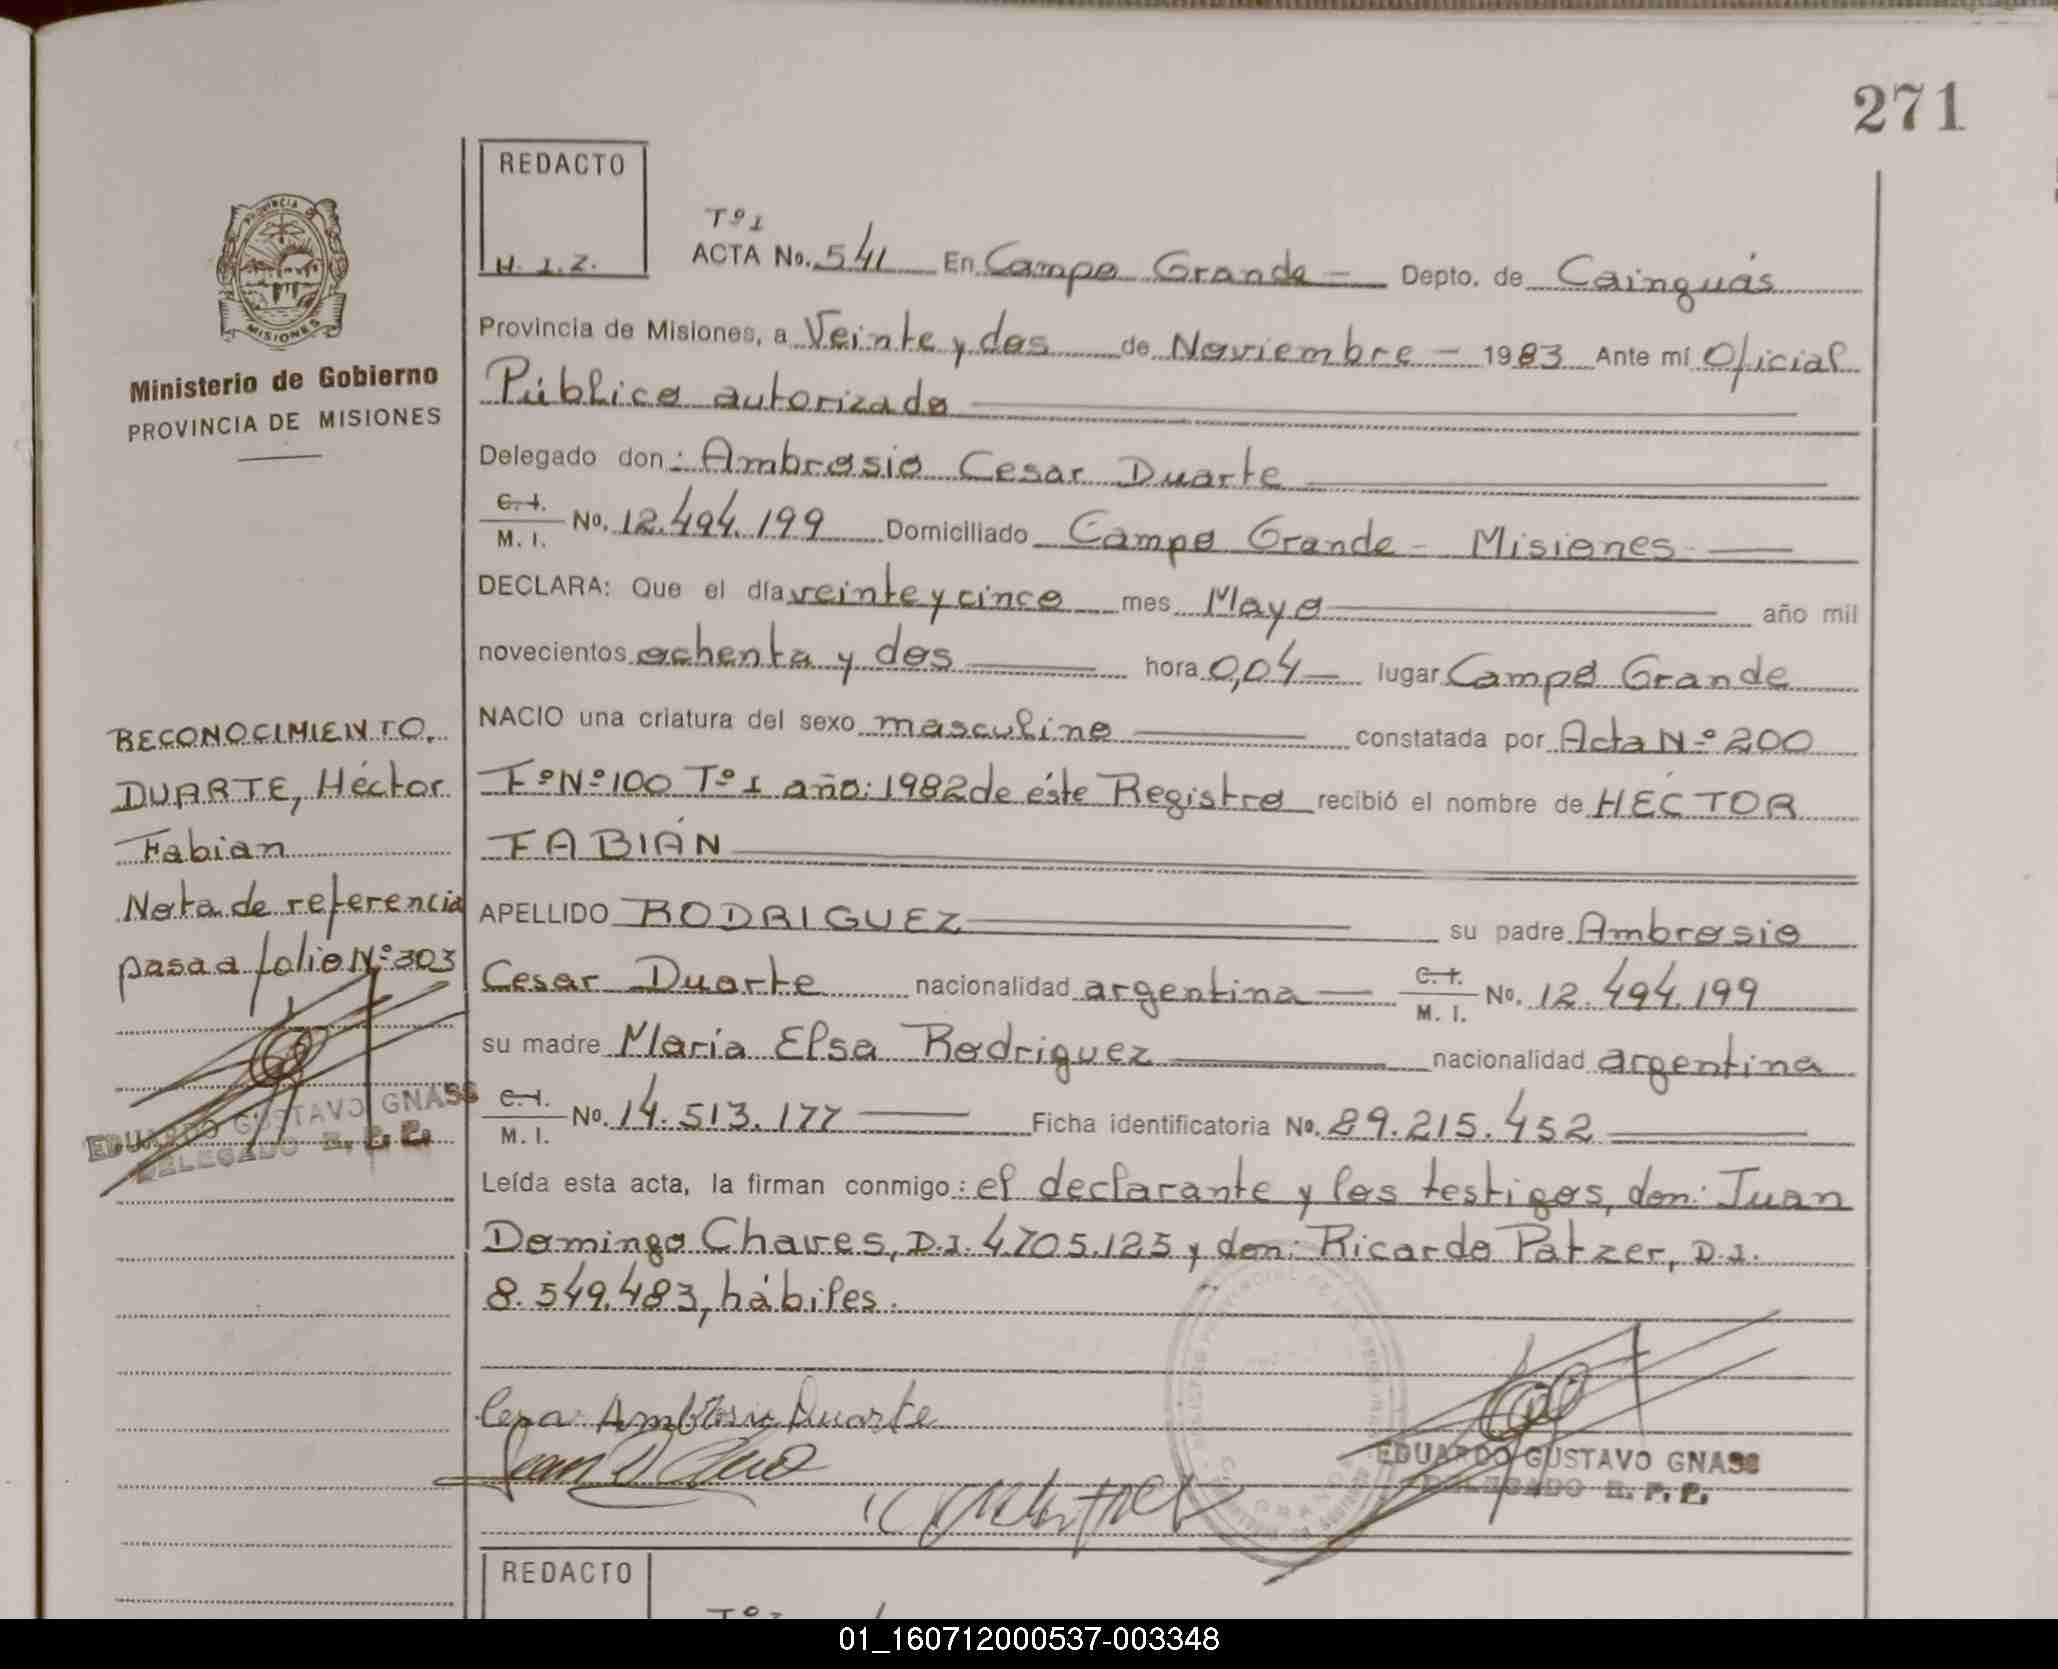 271
REDACTO
H. I. Z.
Tº I
ACTA No. 541 En Campo Grande — Depto. de Cainguás
Provincia de Misiones, a Veinte y dos de Noviembre — 1983 Ante mí Oficial
Público autorizado
Delegado don: Ambrosio Cesar Duarte
C. I.
M. I. No. 12.494.199 Domiciliado Campo Grande - Misiones
DECLARA: Que el día veinte y cinco mes Mayo año mil
novecientos ochenta y dos hora 0,04 lugar Campo Grande
NACIO una criatura del sexo masculino constatada por Acta Nº 200
Fº Nº 100 Tº I año: 1982 de éste Registro recibió el nombre de HÉCTOR
FABIÁN
APELLIDO RODRIGUEZ su padre Ambrosio
Cesar Duarte nacionalidad argentina — C. I.
M. I. No. 12.494.199
su madre María Elsa Rodriguez nacionalidad argentina
C. I.
M. I. No. 14.513.177 Ficha identificatoria No. 29.215.452
Leída esta acta, la firman conmigo: el declarante y los testigos, don: Juan
Domingo Chaves, D.I. 4.705.125 y don: Ricardo Patzer, D.I.
8.549.483, hábiles.
Ambrosio Duarte
EDUARDO GUSTAVO GNASS
DELEGADO R. P. P.
PROVINCIA DE
MISIONES
Ministerio de Gobierno
PROVINCIA DE MISIONES
RECONOCIMIENTO.
DUARTE, Héctor
Fabian
Nota de referencia
pasa a folio Nº 303
EDUARDO GUSTAVO GNASS
DELEGADO R. P. P.
REDACTO
01_160712000537-003348